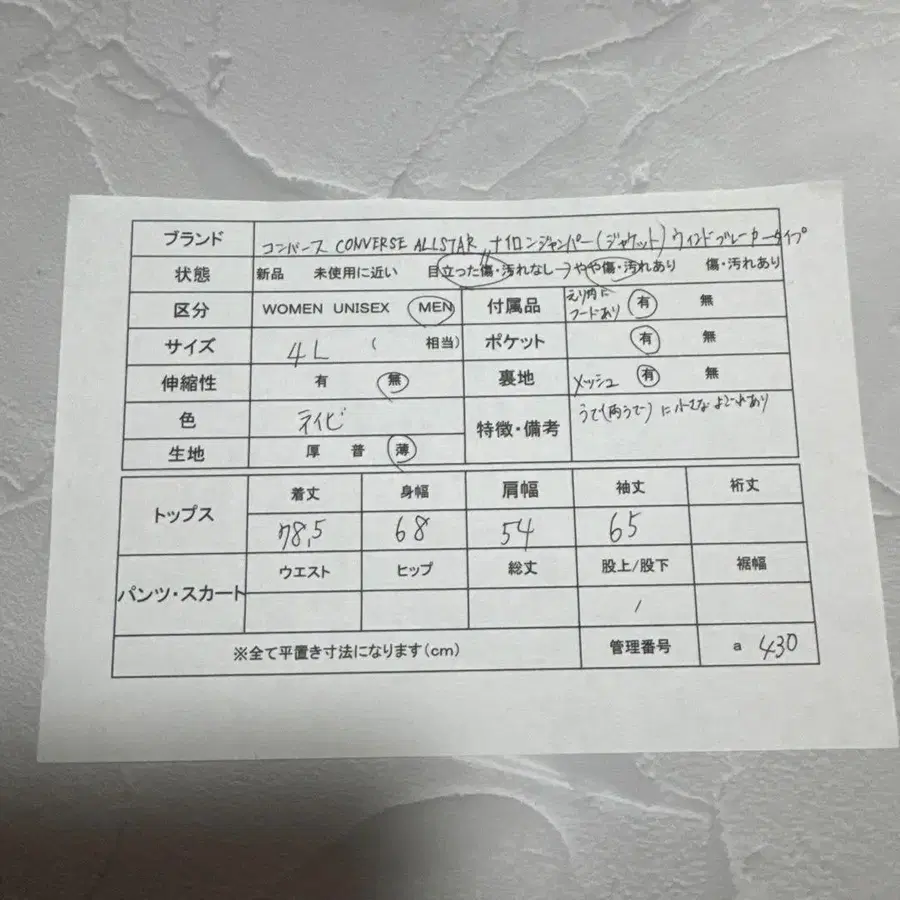 ブランド コンバース CONVERSE ALLSTAR ナイロンジャンパー(ジャケット) ウィンドブレーカータイプ
状態 新品 未使用に近い 目立った傷・汚れなし→やや傷・汚れあり 傷・汚れあり
区分 WOMEN UNISEX MEN 付属品 えり内にフードあり 有 無
サイズ 4L ( 相当) ポケット 有 無
伸縮性 有 無 裏地 メッシュ 有 無
色 ネイビ 特徴・備考 うで(両うで)に小さなよごれあり
生地 厚 普 薄
トップス 着丈 身幅 肩幅 袖丈 裄丈
78,5 68 54 65
パンツ・スカート ウエスト ヒップ 総丈 股上/股下 裾幅
/
※全て平置き寸法になります(cm) 管理番号 a 430